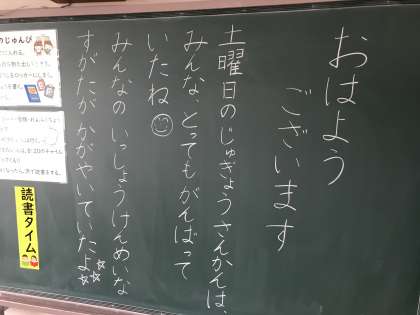 おはよう
ございます
土曜日のじゅぎょうさんかんは、
みんな、とってもがんばって
いたね
みんなの いっしょうけんめいな
すがたが かがやいていたよ
のじゅんび
読書タイム